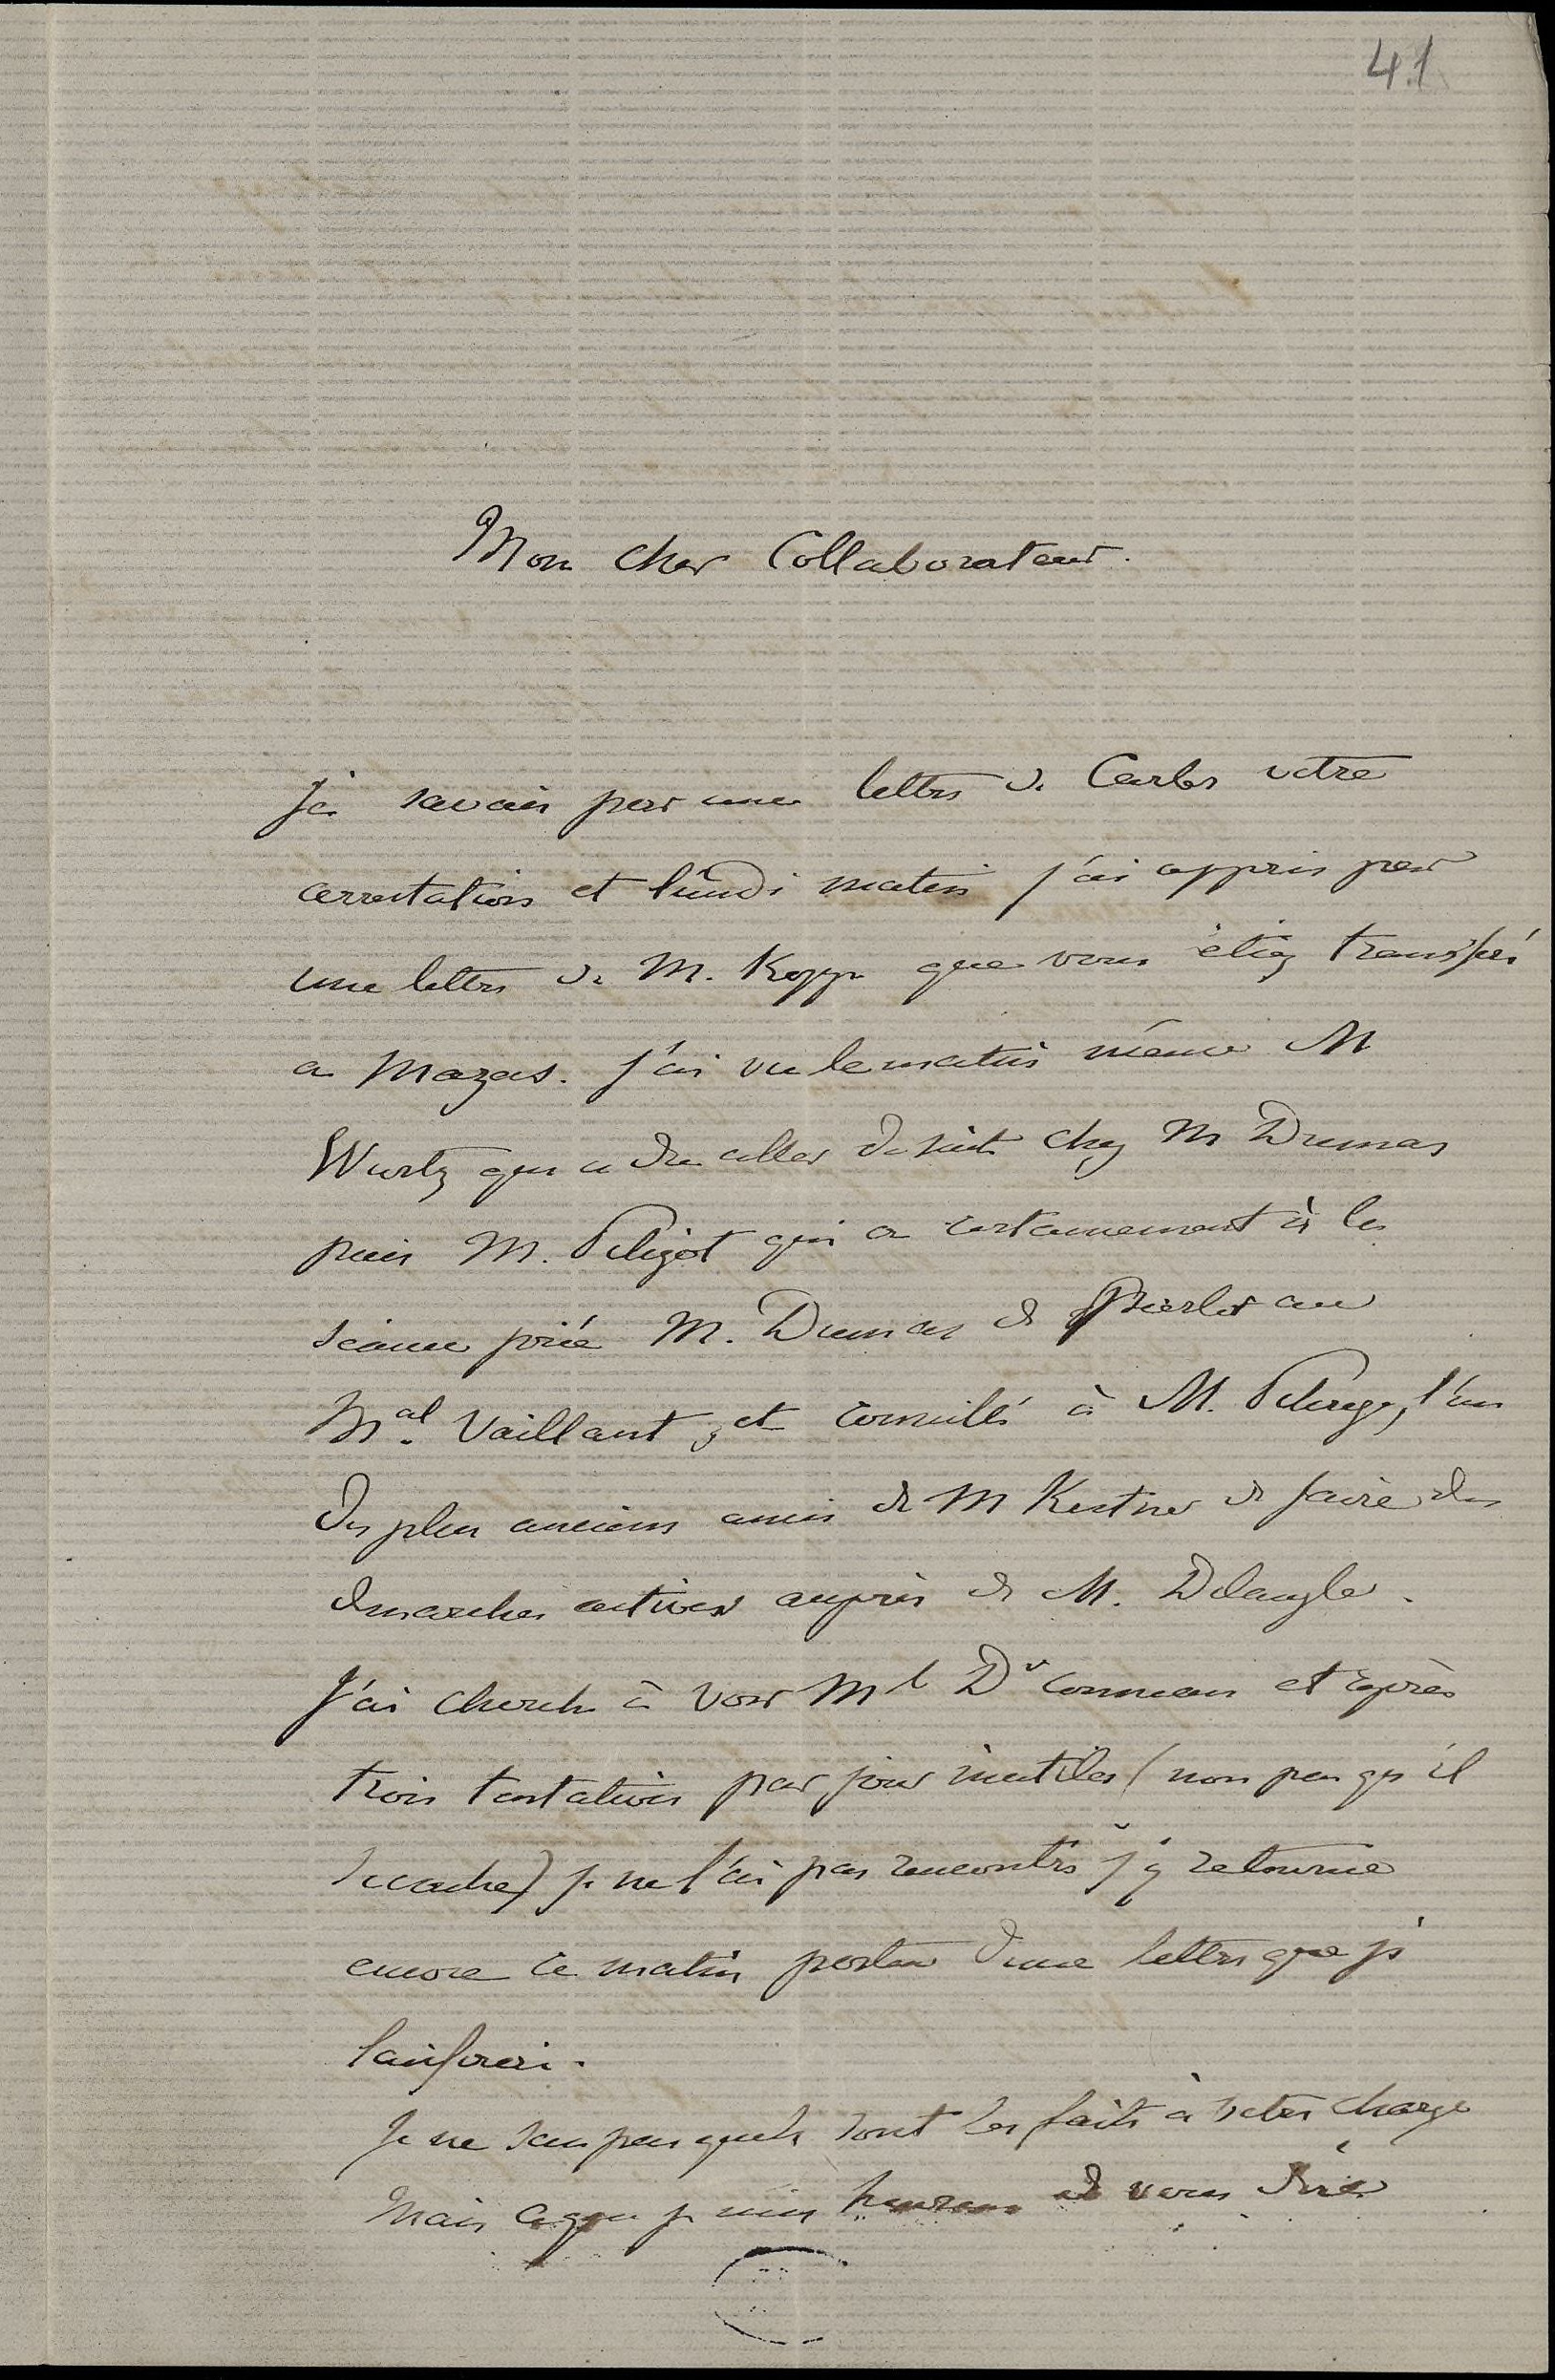 41
Mon cher Collaborateur.
Je savais par une lettre de Carlos votre
arrestation et lundi matin j'ai appris par
une lettre de M. Kopp que vous étiez transféré
a Mazas. J'ai vu le matin même M
Wurtz qui a du aller de suite chez M Dumas
puis M. Peligot qui a certainement à la
séance prié M. Dumas de parler au
Mal. Vaillant, et conseillé à M. Pelouze, l'un
des plus anciens amis de M Kestner de faire des
demarches actives auprès de M. Delangle.
J'ai cherché à voir M l Dr Conneau et après
trois tentatives par jour inutiles (non pas qu'il
se cache) je ne l'ai pas rencontré j'y retourne
encore ce matin porteur d'une lettre que je
laisserai.
Je ne sais pas quels sont les faits à votre charge
Mais ce que je suis heureux de vous dire